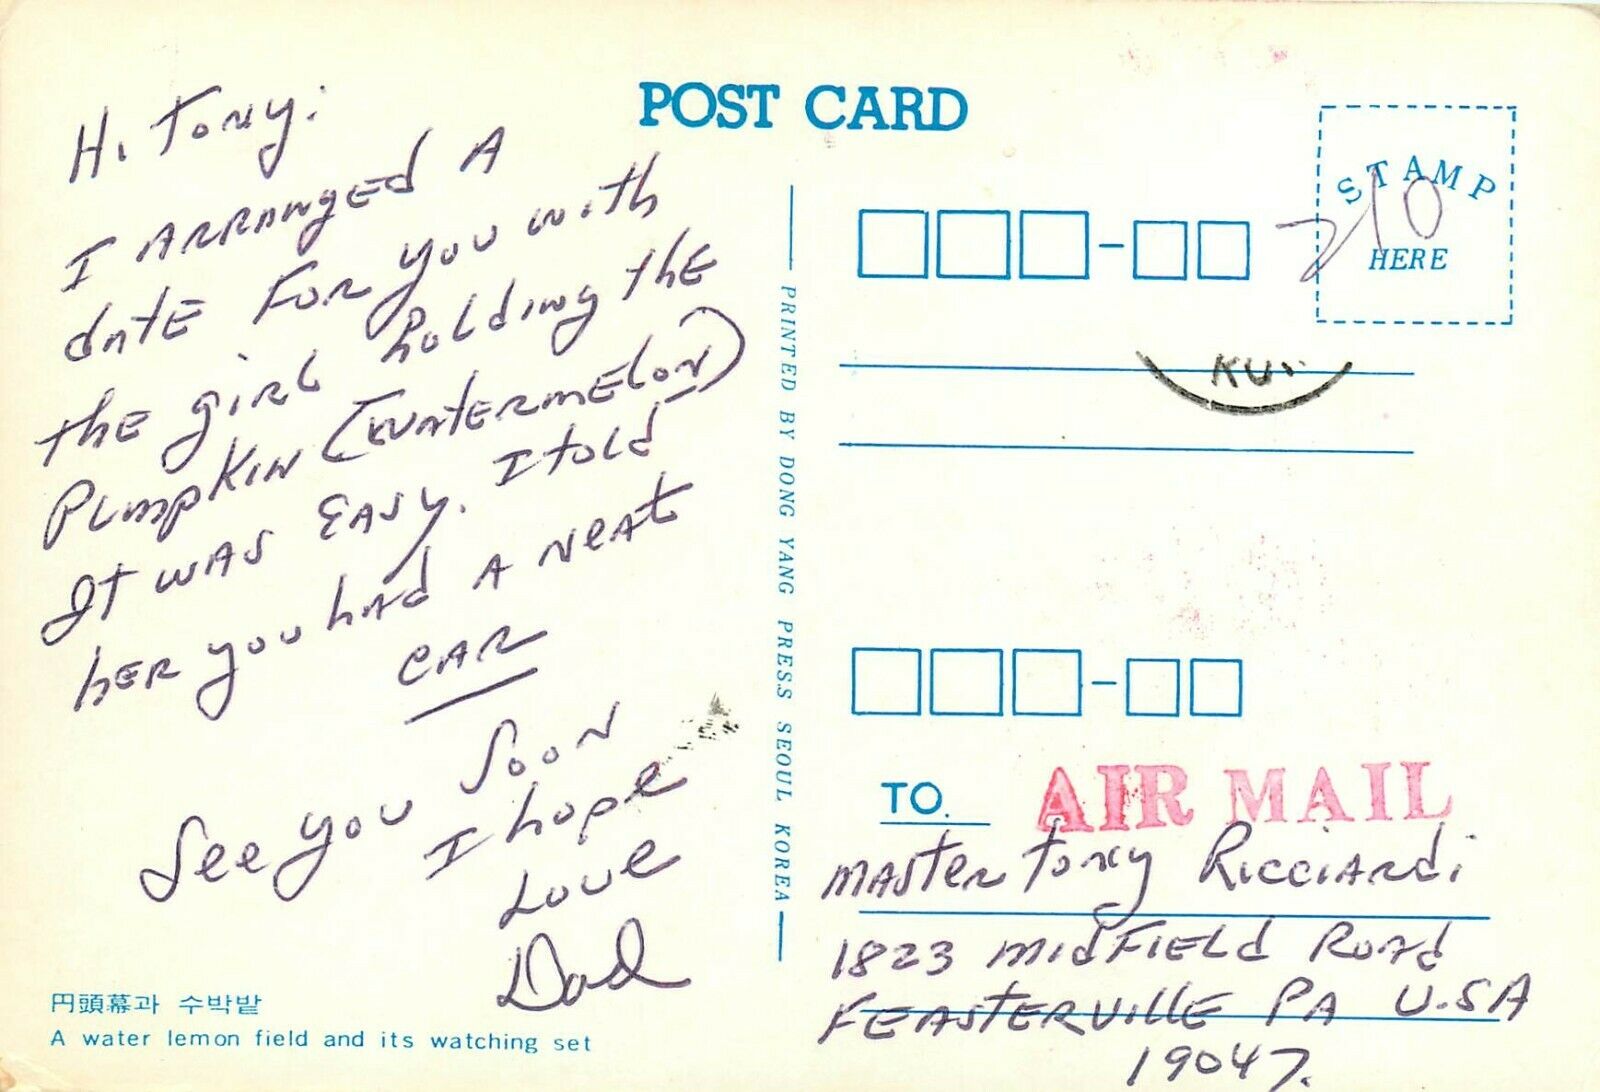 POST CARD
Hi Tony:
I ARRANGED A
dATE FOR you with
the girl holding the
Pumpkin (Watermelon)
It was EASY. I told
her you had A NEAT
CAR
See you Soon
I hope
Love
Dad
円頭幕과 수박밭
A water lemon field and its watching set
PRINTED BY DONG YANG PRESS SEOUL KOREA
STAMP
HERE
210
TO.
AIR MAIL
MASTER TONY RICCIARDi
1823 MIDFIELD ROAD
FEASTERVILLE PA U.SA
19047.